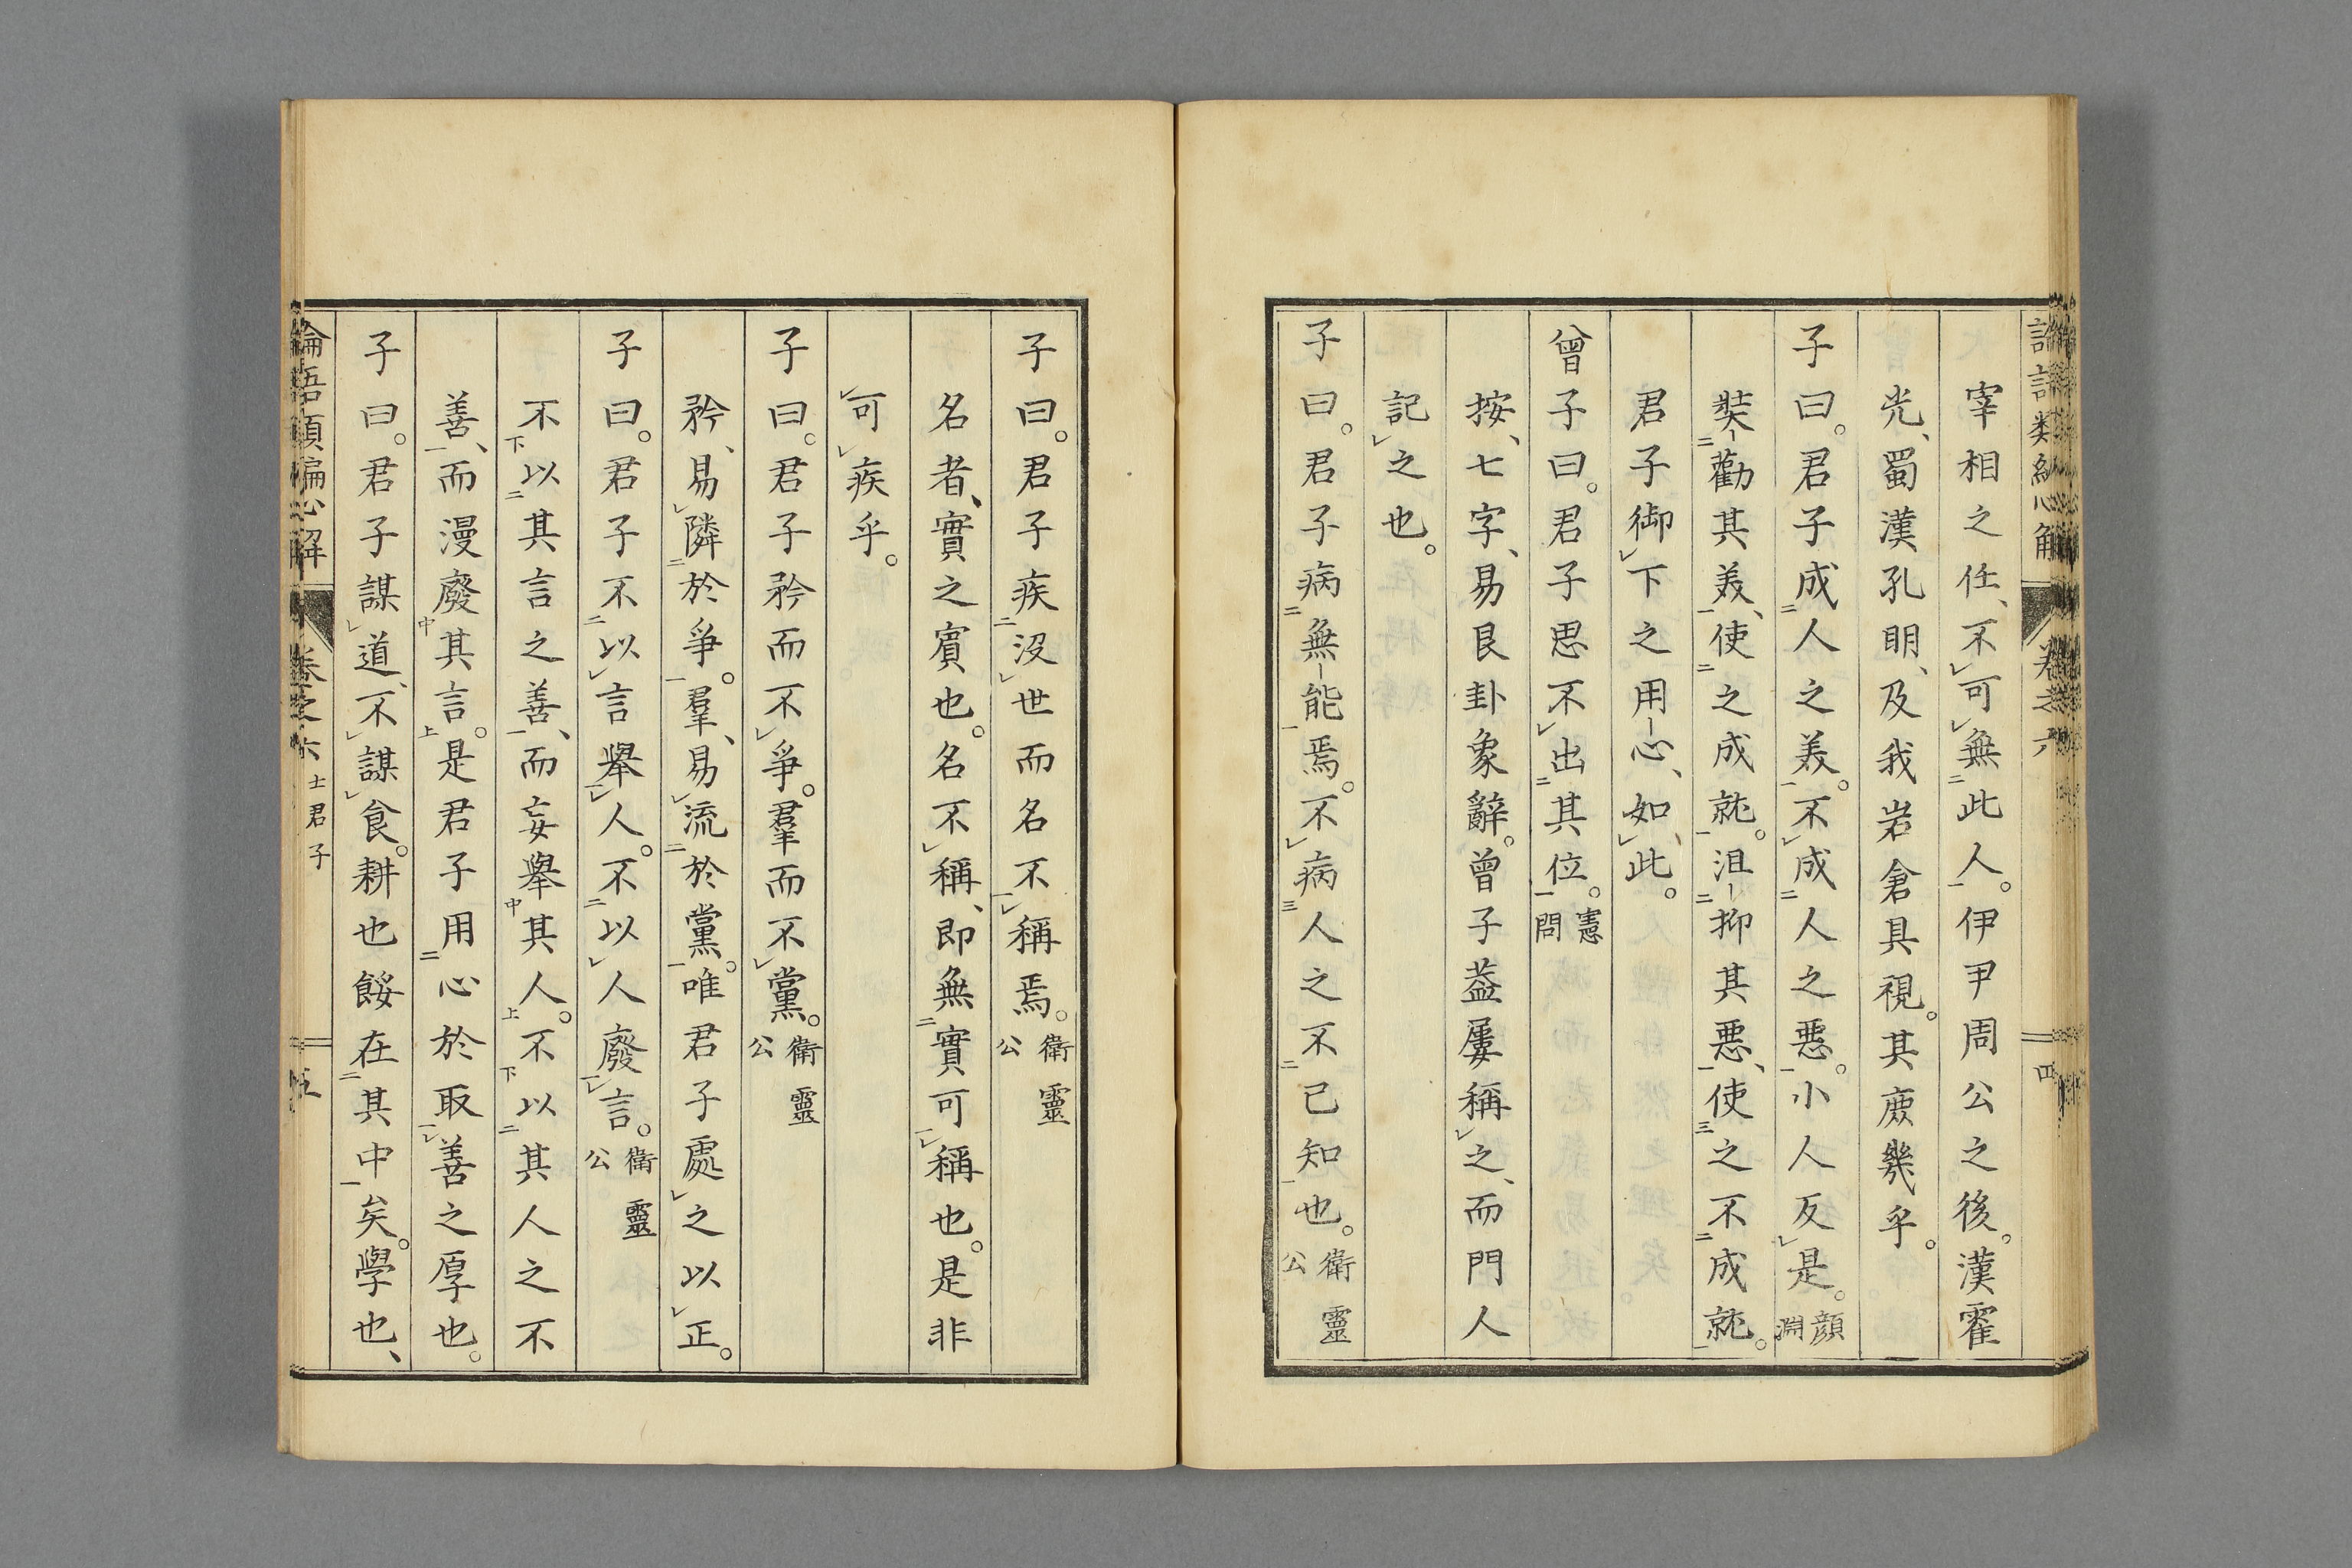 宰相之任、不可無此人。伊尹周公之後。漢霍
光、蜀漢孔明、及我岩倉具視。其庶幾乎。
子曰。君子成人之美。不成人之惡。小人反是。顏淵
奘勸其美、使之成就。沮抑其惡、使之不成就。
君子御下之用心、如此。
曾子曰。君子思不出其位。憲問
按、七字、易艮卦象辭。曾子益屢稱之、而門人
記之也。
子曰。君子病無能焉。不病人之不已知也。衛靈公
子曰。君子疾沒世而名不稱焉。衛靈公
名者、實之賓也。名不稱、即無實可稱也。是非
可疾乎。
子曰。君子矜而不爭。羣而不黨。衛靈公
矜、易隣於爭。羣、易流於黨。唯君子處之以正。
子曰。君子不以言舉人。不以人廢言。衛靈公
不以其言之善、而妄舉其人。不以其人之不
善、而漫廢其言。是君子用心於取善之厚也。
子曰。君子謀道、不謀食。耕也餒在其中矣。學也、
論語類編心解 卷之六 士君子 五